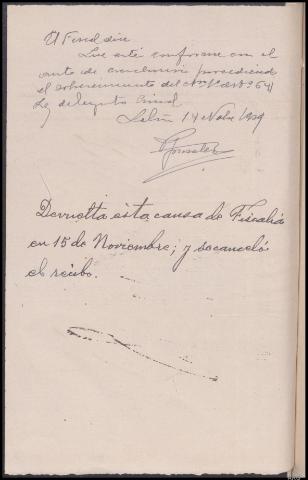 El Fiscal dice
Que está conforme con el
auto de conclusión procediendo
el sobreseimiento del nº 1º del Art 641
Ley de Enjto Criminal
14 Nobre 1939
Devuelta esta causa de Fiscalía
en 15 de Noviembre; y se canceló
el recibo.